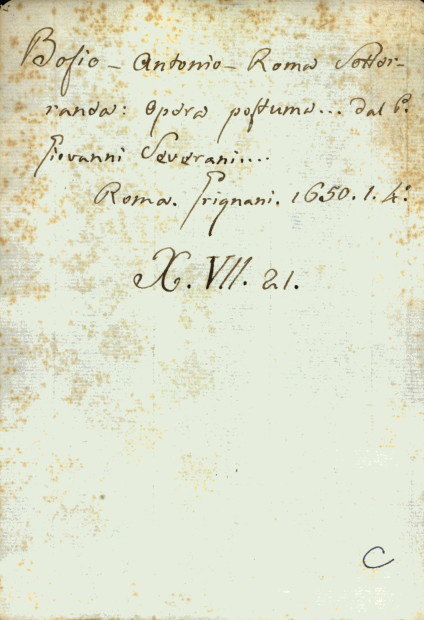 Bosio - Antonio - Roma Sotter-
ranea: Opera postuma... dal P.
Giovanni Severani....
Roma. Grignani. 1650. 1. 4.º
X. VII. 21.
C